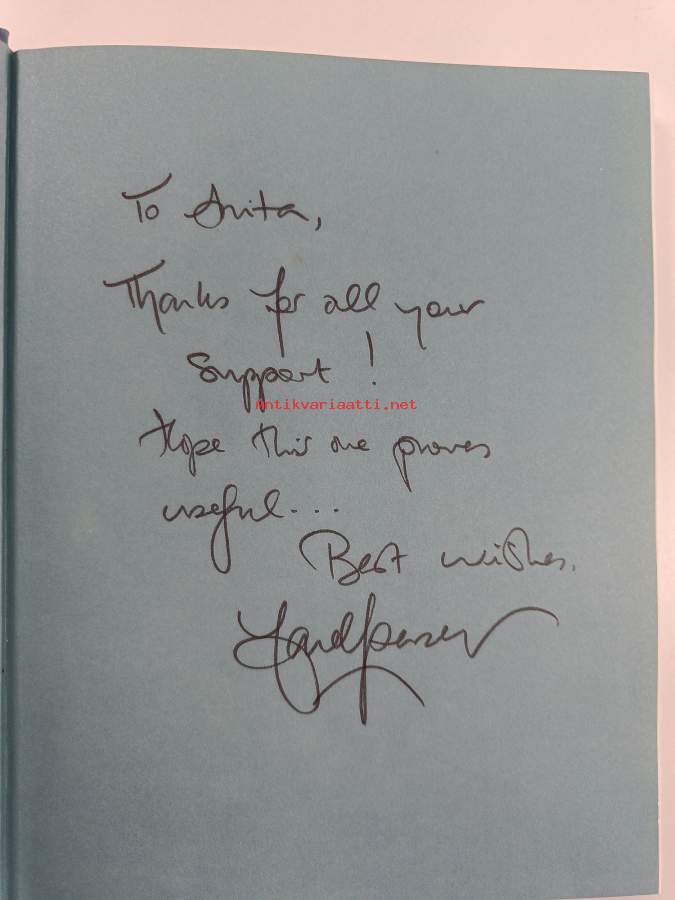 To Anita,
Thanks for all your
Support!
Antikvariaatti.net
Hope this one proves
useful...
Best wishes,